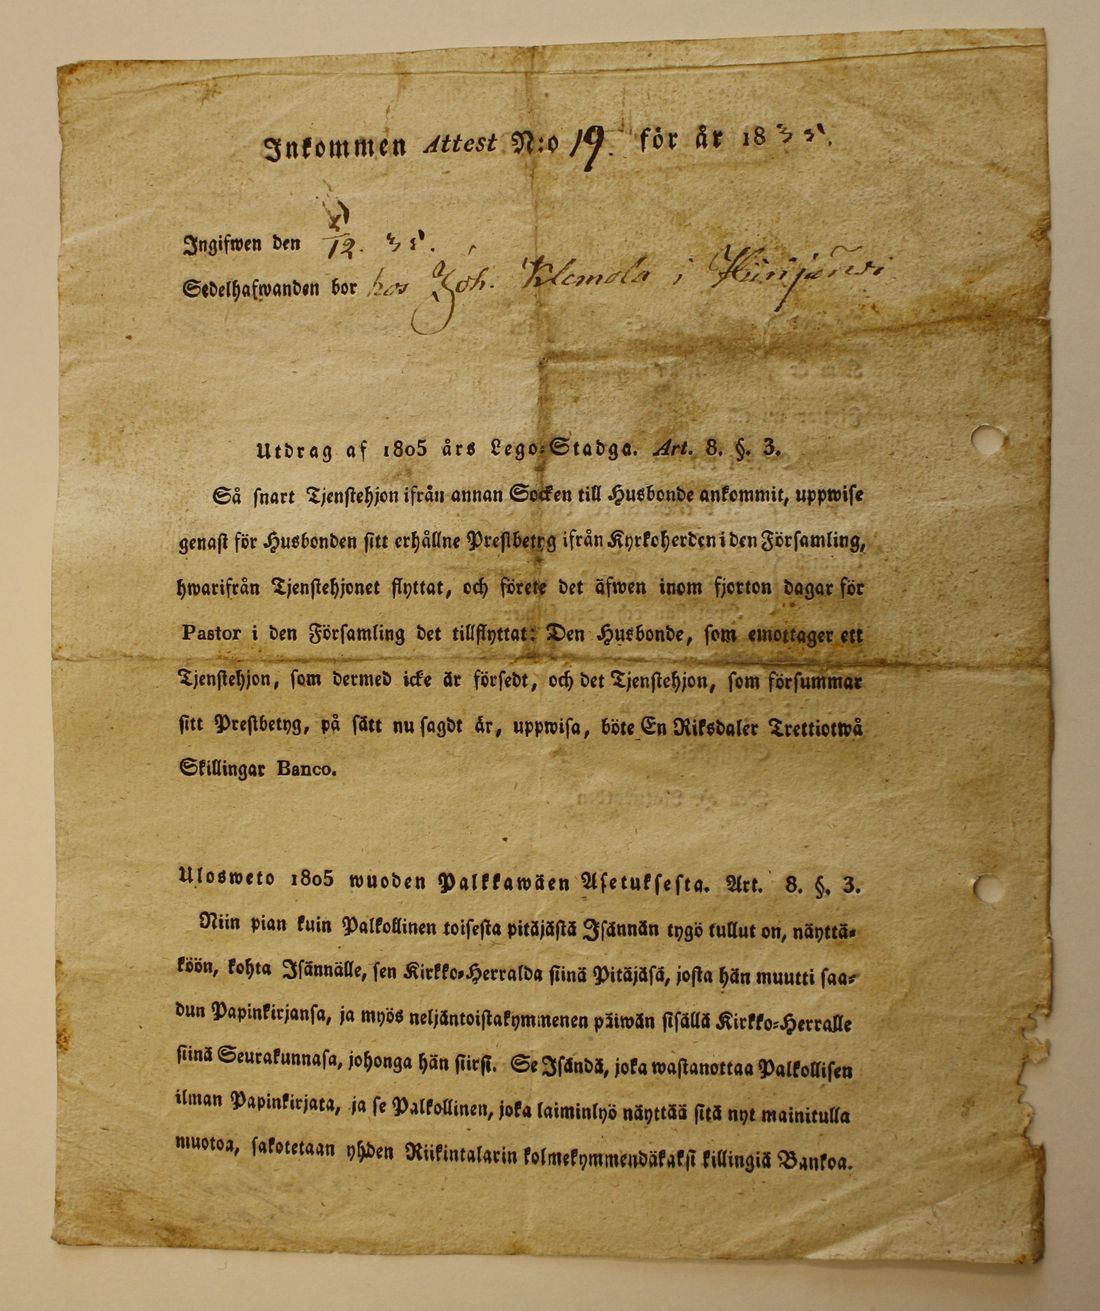 Inkommen Attest N:o 19. för år 1835.
Ingifwen den /12. 35.
Sedelhafwanden bor hos Joh. Klemola i Kiinjärwi
Utdrag af 1805 års Lego-Stadga. Art. 8. §. 3.
Så snart Tjenstehjon ifrån annan Socken till Husbonde ankommit, uppwise
genast för Husbonden sitt erhållne Prestbetyg ifrån Kyrkoherden i den Församling,
hwarifrån Tjenstehjonet flyttat, och förete det äfwen inom fjorton dagar för
Pastor i den Församling det tillflyttat: Den Husbonde, som emottager ett
Tjenstehjon, som dermed icke är försedt, och det Tjenstehjon, som försummar
sitt Prestbetyg, på sätt nu sagdt är, uppwisa, böte En Riksdaler Trettiotwå
Skillingar Banco.
Ulosweto 1805 wuoden Palkkawäen Asetuksesta. Art. 8. §. 3.
Niin pian kuin Palkollinen toisesta pitäjästä Isännän tygö tullut on, näyttä-
köön, kohta Isännälle, sen Kirkko-Herralda siinä Pitäjäsä, josta hän muutti saa-
dun Papinkirjansa, ja myös neljäntoistakymmenen päiwän sisällä Kirkko-Herralle
siinä Seurakunnasa, johonga hän siirsi. Se Isändä, joka wastanottaa Palkollisen
ilman Papinkirjata, ja se Palkollinen, joka laiminlyö näyttää sitä nyt mainitulla
muotoa, sakotetaan yhden Riikintalarin kolmekymmendäkaksi killingiä Bankoa.